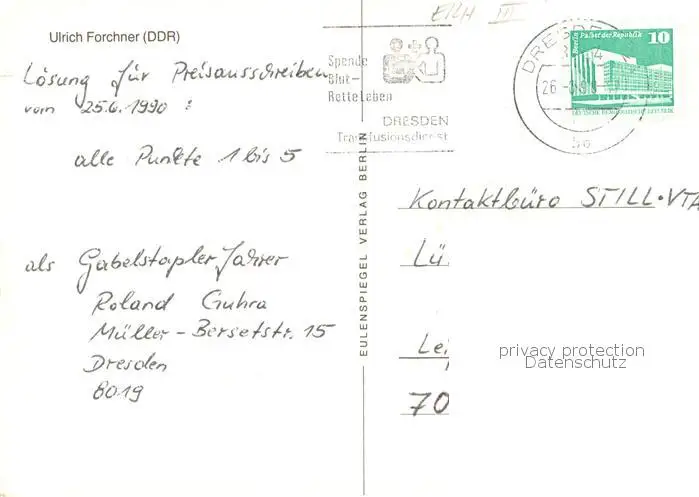 EILH III
Ulrich Forchner (DDR)
Lösung für Preisausschreiben
vom 25.6.1990 :
alle Punkte 1 bis 5
als Gabelstapler Fahrer
Roland Guhra
Müller-Bersetstr. 15
Dresden
8019
EULENSPIEGEL VERLAG BERLIN
Spende
Blut-
Rette Leben
DRESDEN
Transfusionsdienst
DRESDEN
Berlin, Palast der Republik
10
DEUTSCHE DEMOKRATISCHE REPUBLIK
Kontaktbüro STILL·VTA
Lü
Lei
70
privacy protection
Datenschutz